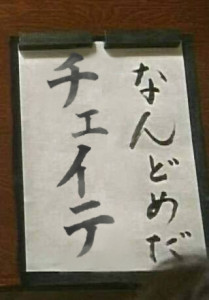 なんどめだ
チェイテ